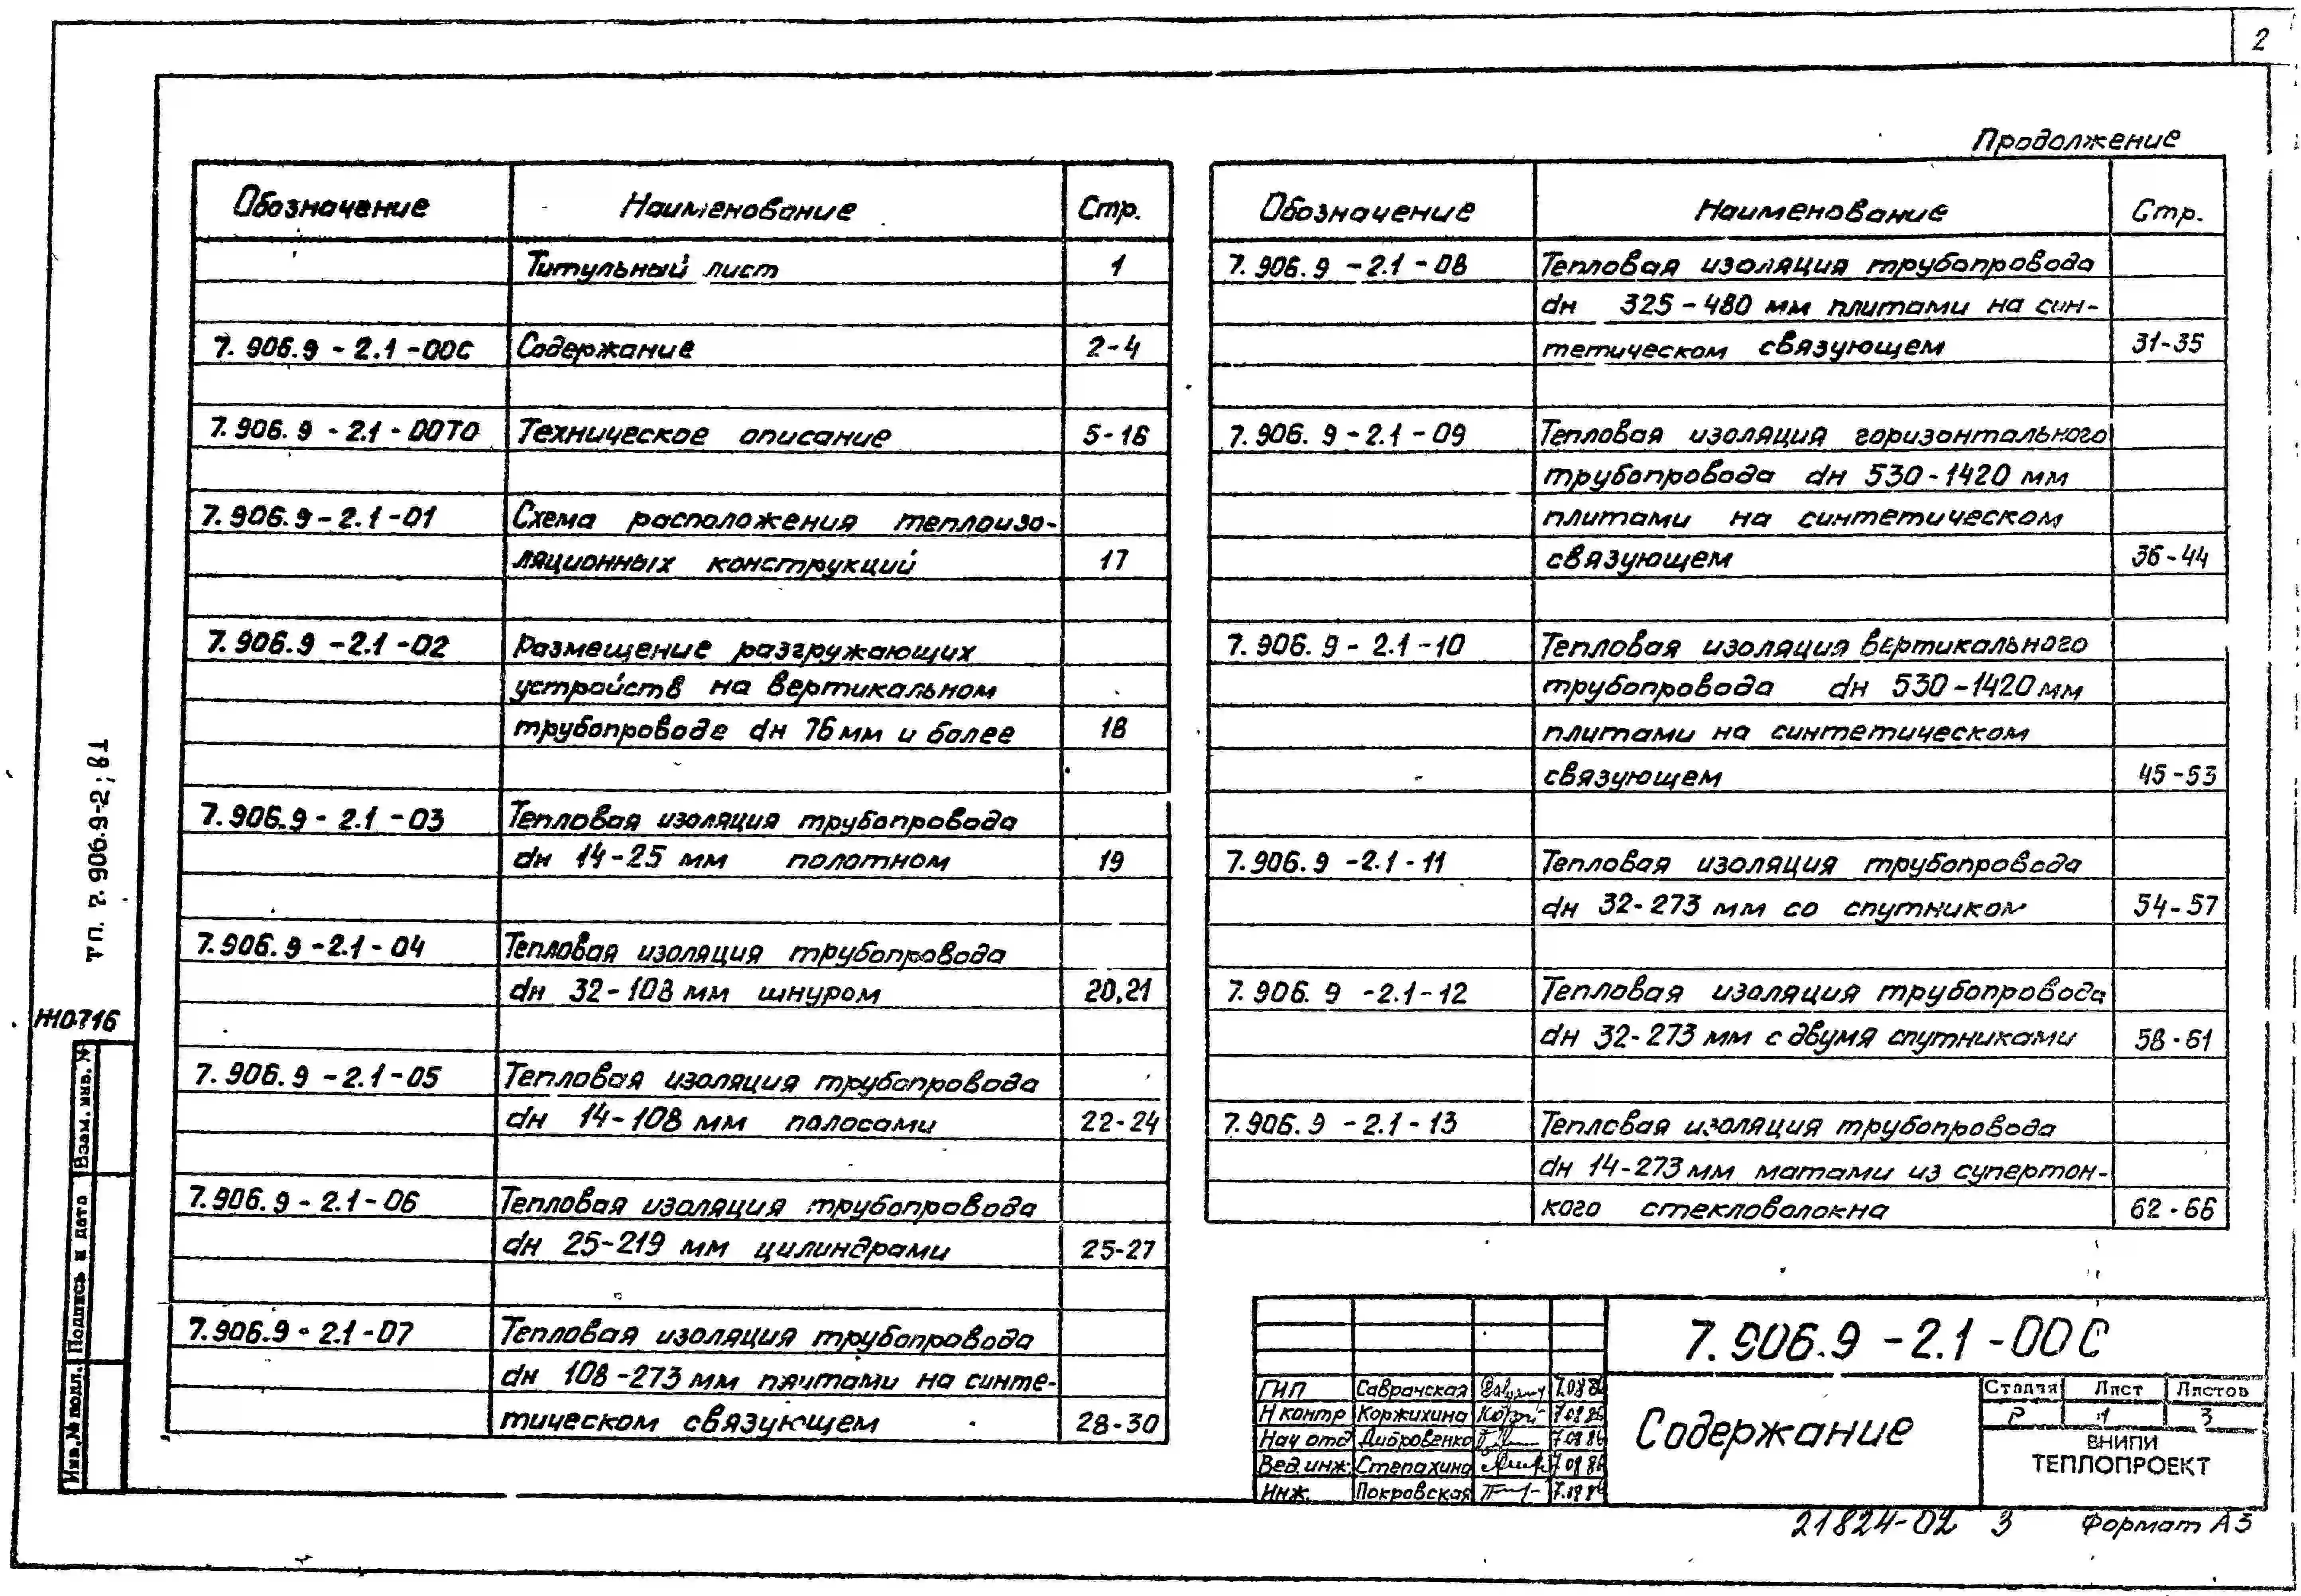 2
Обозначение Наименование Стр.
Титульный лист 1
7.906.9-2.1-00С Содержание 2-4
7.906.9-2.1-00ТО Техническое описание 5-16
7.906.9-2.1-01 Схема расположения теплоизо-
ляционных конструкций 17
7.906.9-2.1-02 Размещение разгружающих
устройств на вертикальном
трубопроводе dн 76 мм и более 18
7.906.9-2.1-03 Тепловая изоляция трубопровода
dн 14-25 мм полотном 19
7.906.9-2.1-04 Тепловая изоляция трубопровода
dн 32-108 мм шнуром 20,21
7.906.9-2.1-05 Тепловая изоляция трубопровода
dн 14-108 мм полосами 22-24
7.906.9-2.1-06 Тепловая изоляция трубопровода
dн 25-219 мм цилиндрами 25-27
7.906.9-2.1-07 Тепловая изоляция трубопровода
dн 108-273 мм плитами на синте-
тическом связующем 28-30
Продолжение
Обозначение Наименование Стр.
7.906.9-2.1-08 Тепловая изоляция трубопровода
dн 325-480 мм плитами на син-
тетическом связующем 31-35
7.906.9-2.1-09 Тепловая изоляция горизонтального
трубопровода dн 530-1420 мм
плитами на синтетическом
связующем 36-44
7.906.9-2.1-10 Тепловая изоляция вертикального
трубопровода dн 530-1420 мм
плитами на синтетическом
связующем 45-53
7.906.9-2.1-11 Тепловая изоляция трубопровода
dн 32-273 мм со спутником 54-57
7.906.9-2.1-12 Тепловая изоляция трубопровода
dн 32-273 мм с двумя спутниками 58-61
7.906.9-2.1-13 Тепловая изоляция трубопровода
dн 14-273 мм матами из супертон-
кого стекловолокна 62-66
тп. 7.906.9-2; В1
Ж10716
Взам. инв. №
Подпись и дата
Инв. № подл.
7.906.9-2.1-00С
ГИП Саврачская 7.08.86
Н контр Коржихина 7.08.86
Нач отд Дибровенко 7.08.86
Вед. инж. Степахина 7.08.86
Инж. Покровская
Содержание
Стадия Лист Листов
Р 1 3
ВНИПИ
ТЕПЛОПРОЕКТ
21824-02 3 Формат А3